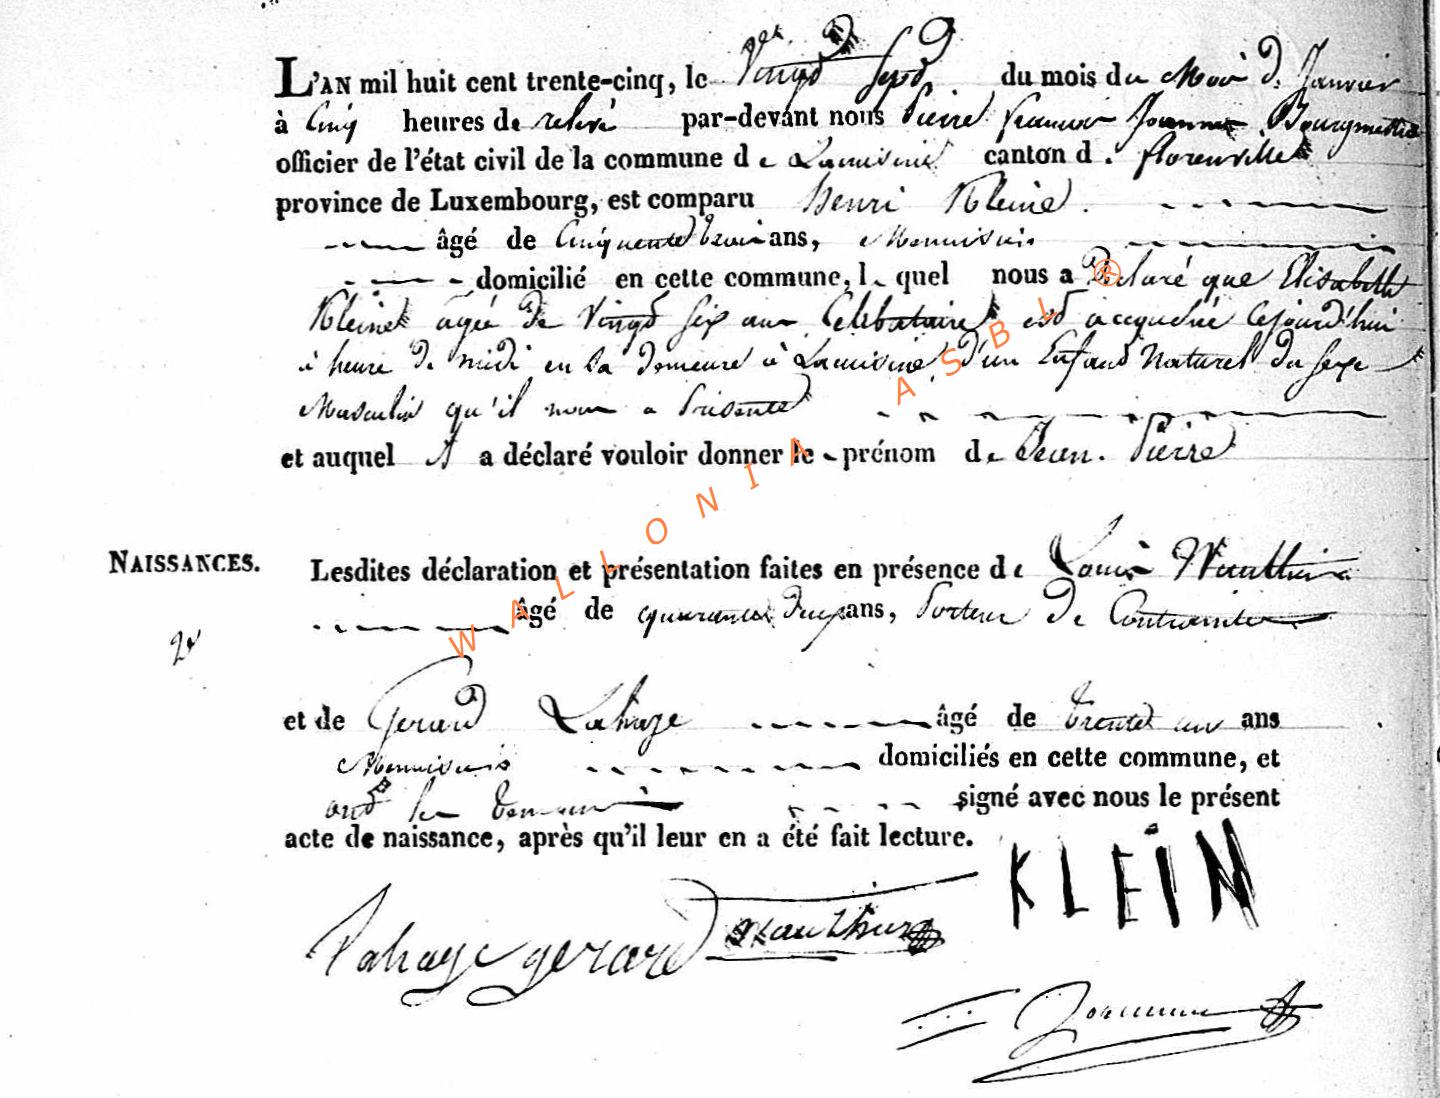 L'AN mil huit cent trente-cinq, le Vingt Sept du mois du Mois de Janvier
à Cinq heures de relevé par-devant nous Pierre Joannes Bourgmestre
officier de l'état civil de la commune de Lacuisine canton de florenville
province de Luxembourg, est comparu henri Kleine
âgé de Cinquente trois ans, Menuisier
domicilié en cette commune, lequel nous a Déclaré que Elisabeth
Kleine agée de Vingt six ans Celibataire est accouchée Cejourd'hui
à heure de midi en sa demeure à Lacuisine, d'un Enfant Naturel du sexe
Masculin qu'il nous a Présenté
et auquel il a déclaré vouloir donner le prénom de Jean Pierre
NAISSANCES.
Lesdites déclaration et présentation faites en présence de Louis Wauthier
âgé de quarante deux ans, Porteur de Contrainte
et de Gerard Lahaye âgé de trente un ans
Menuisier domiciliés en cette commune, et
ont les temoins signé avec nous le présent
acte de naissance, après qu'il leur en a été fait lecture.
KLEIN
Lahaye gerard Wauthier
WALLONIA ASBL ®